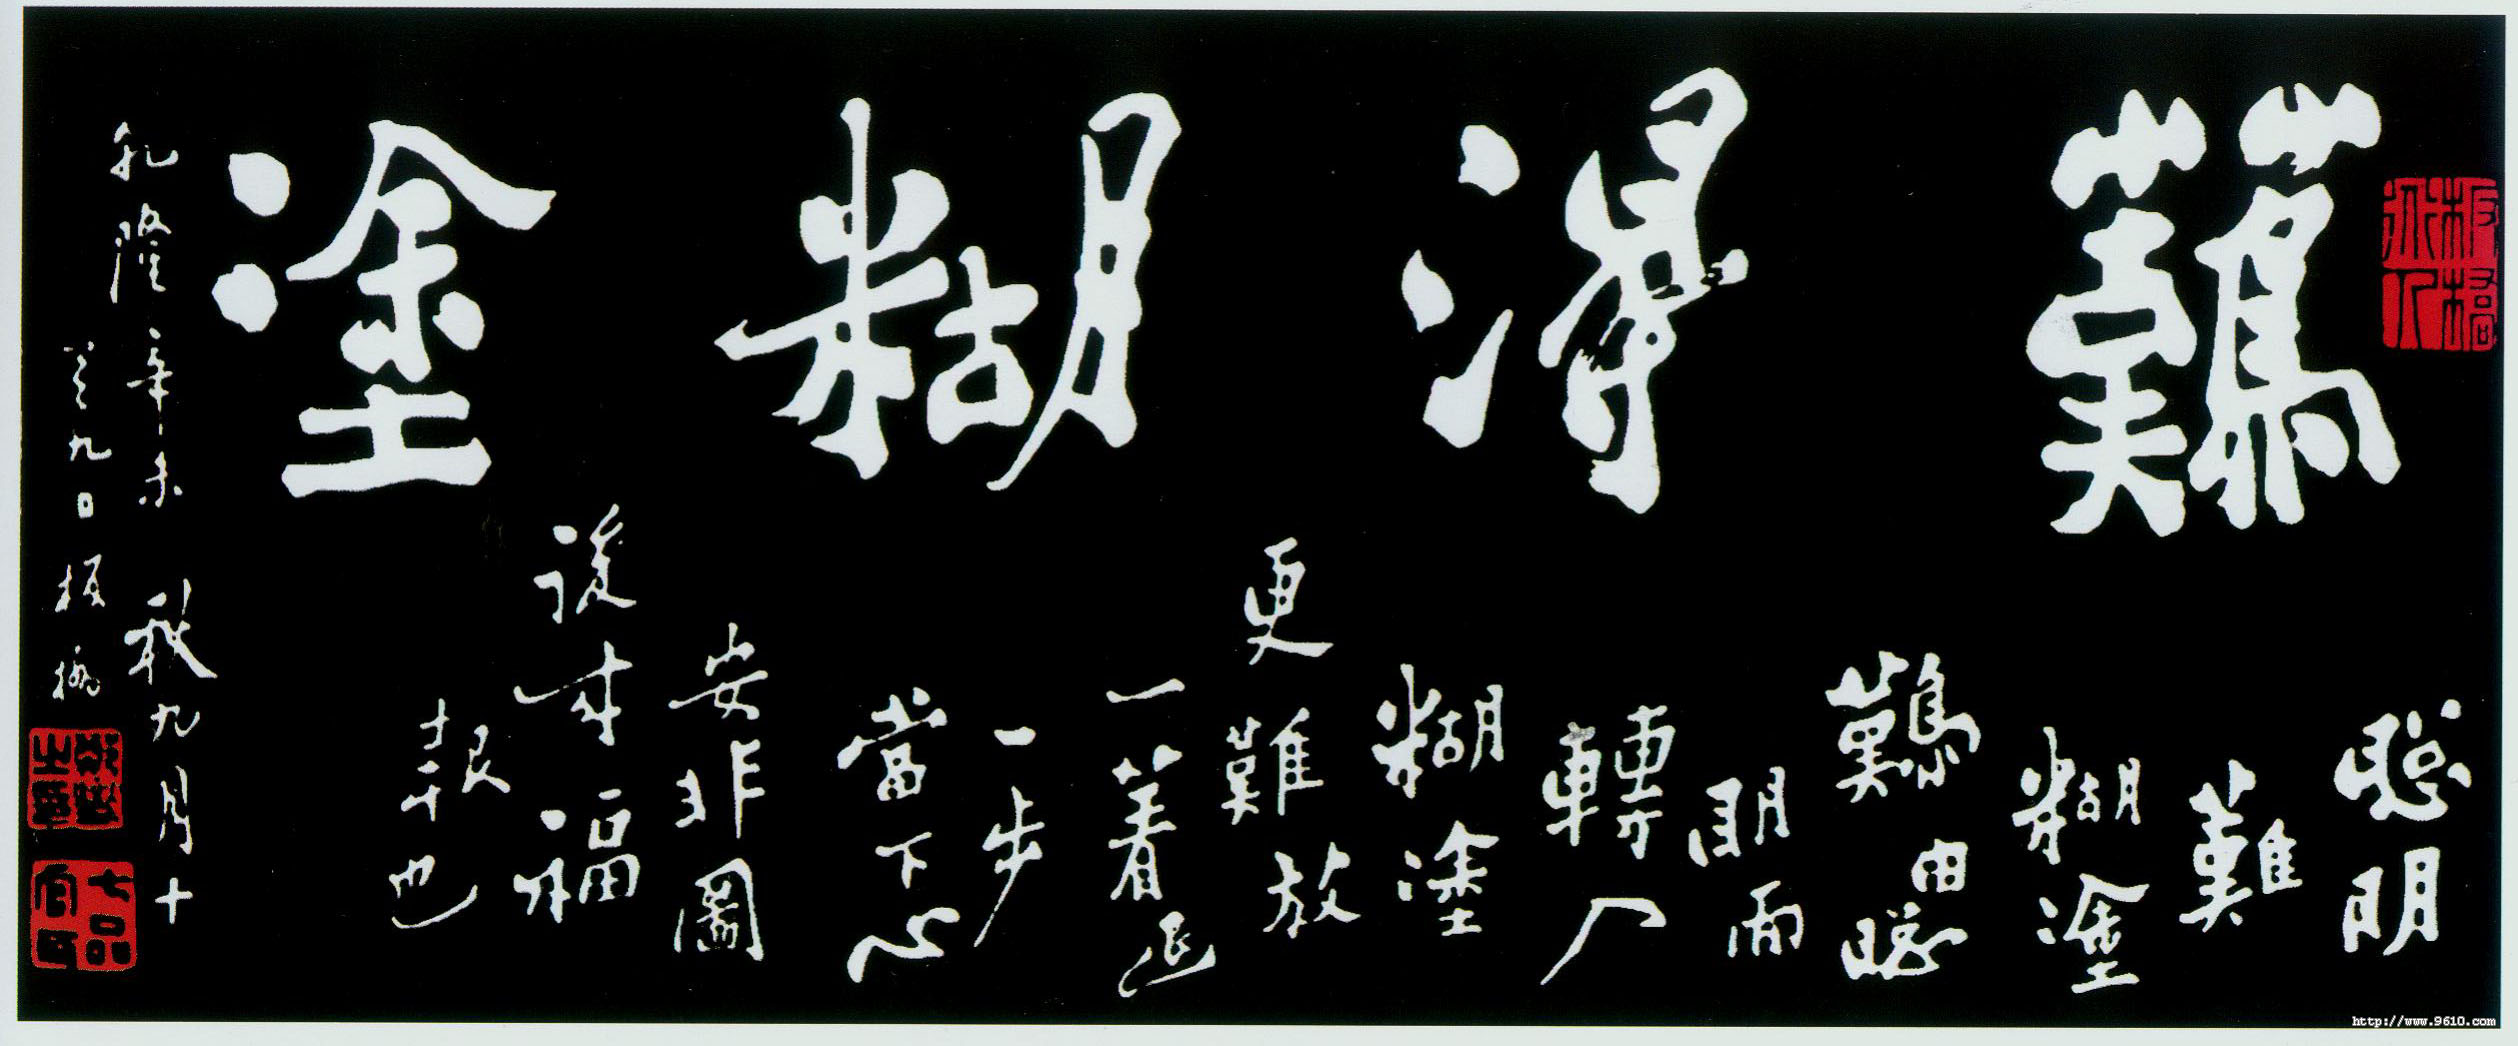 難得糊塗
聰明
難
糊塗
難由聰
明而
轉入
糊塗
更難放
一著退
一步
當下心
安非圖
後來福
報也
乾隆辛未秋九月十
九日板橋
板橋
七品官耳
http://www.9610.com